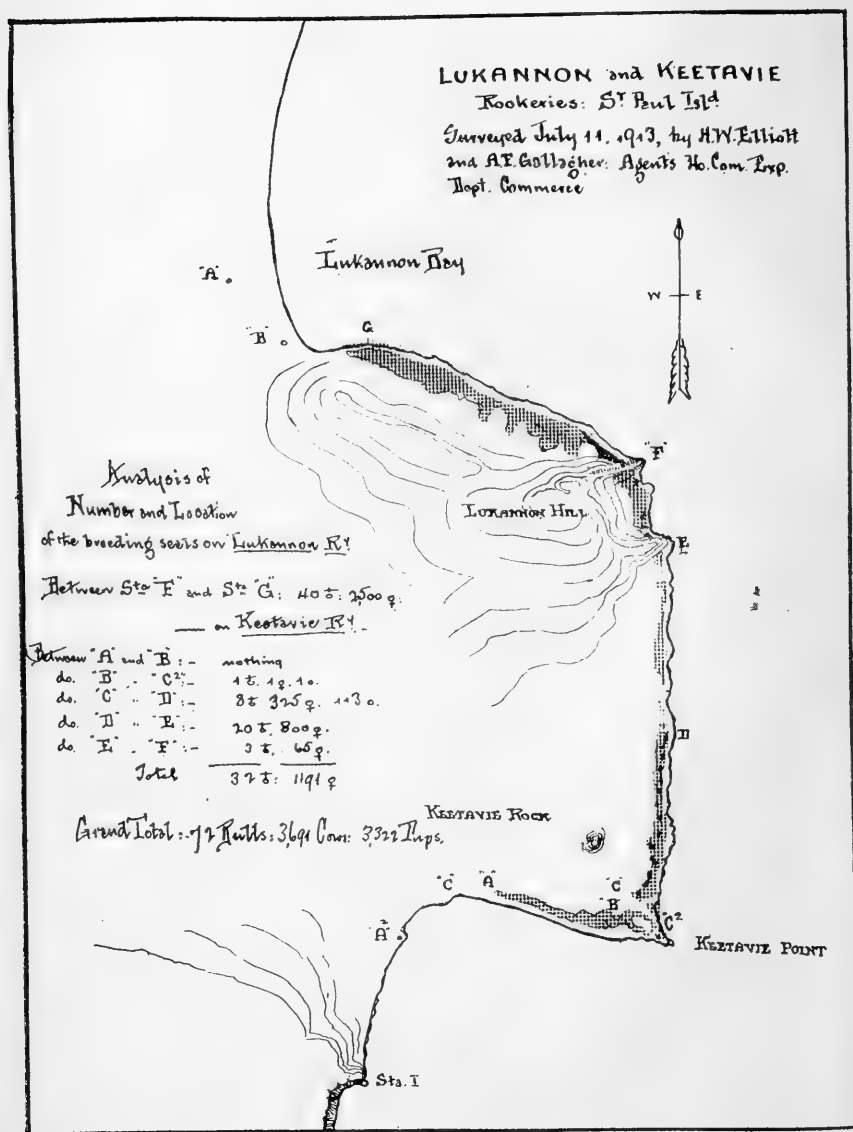 LUKANNON and KEETAVIE
Rookeries: St Paul Isld
Surveyed July 11, 1913, by H.W. Elliott
and A.F. Gallagher: Agents Ho. Com. Exp.
Dept. Commerce
Lukannon Bay
"A"
W E
"B"
G
"F"
LUKANNON HILL
E
Analysis of
Number and Location
of the breeding seals on Lukannon Ry
Between Sta "F" and Sta "G": 40 ♂: 2,500 ♀.
— on Keetavie Ry —
Between "A" and "B":- nothing
do. "B" " "C2":- 1 ♂. 1 ♀. 1 o.
do. "C" " "D":- 8 ♂ 325 ♀. 113 o.
do. "D" " "E":- 20 ♂. 800 ♀.
do. "E" " "F":- 3 ♂, 65 ♀.
Total 32 ♂: 1191 ♀
D
Grand Total:- 72 Bulls: 3,691 Cows: 3,322 Pups.
KEETAVIE ROCK
"C" "A" "C"
"B"
"C2"
"A2"
KEETAVIE POINT
Sta. I